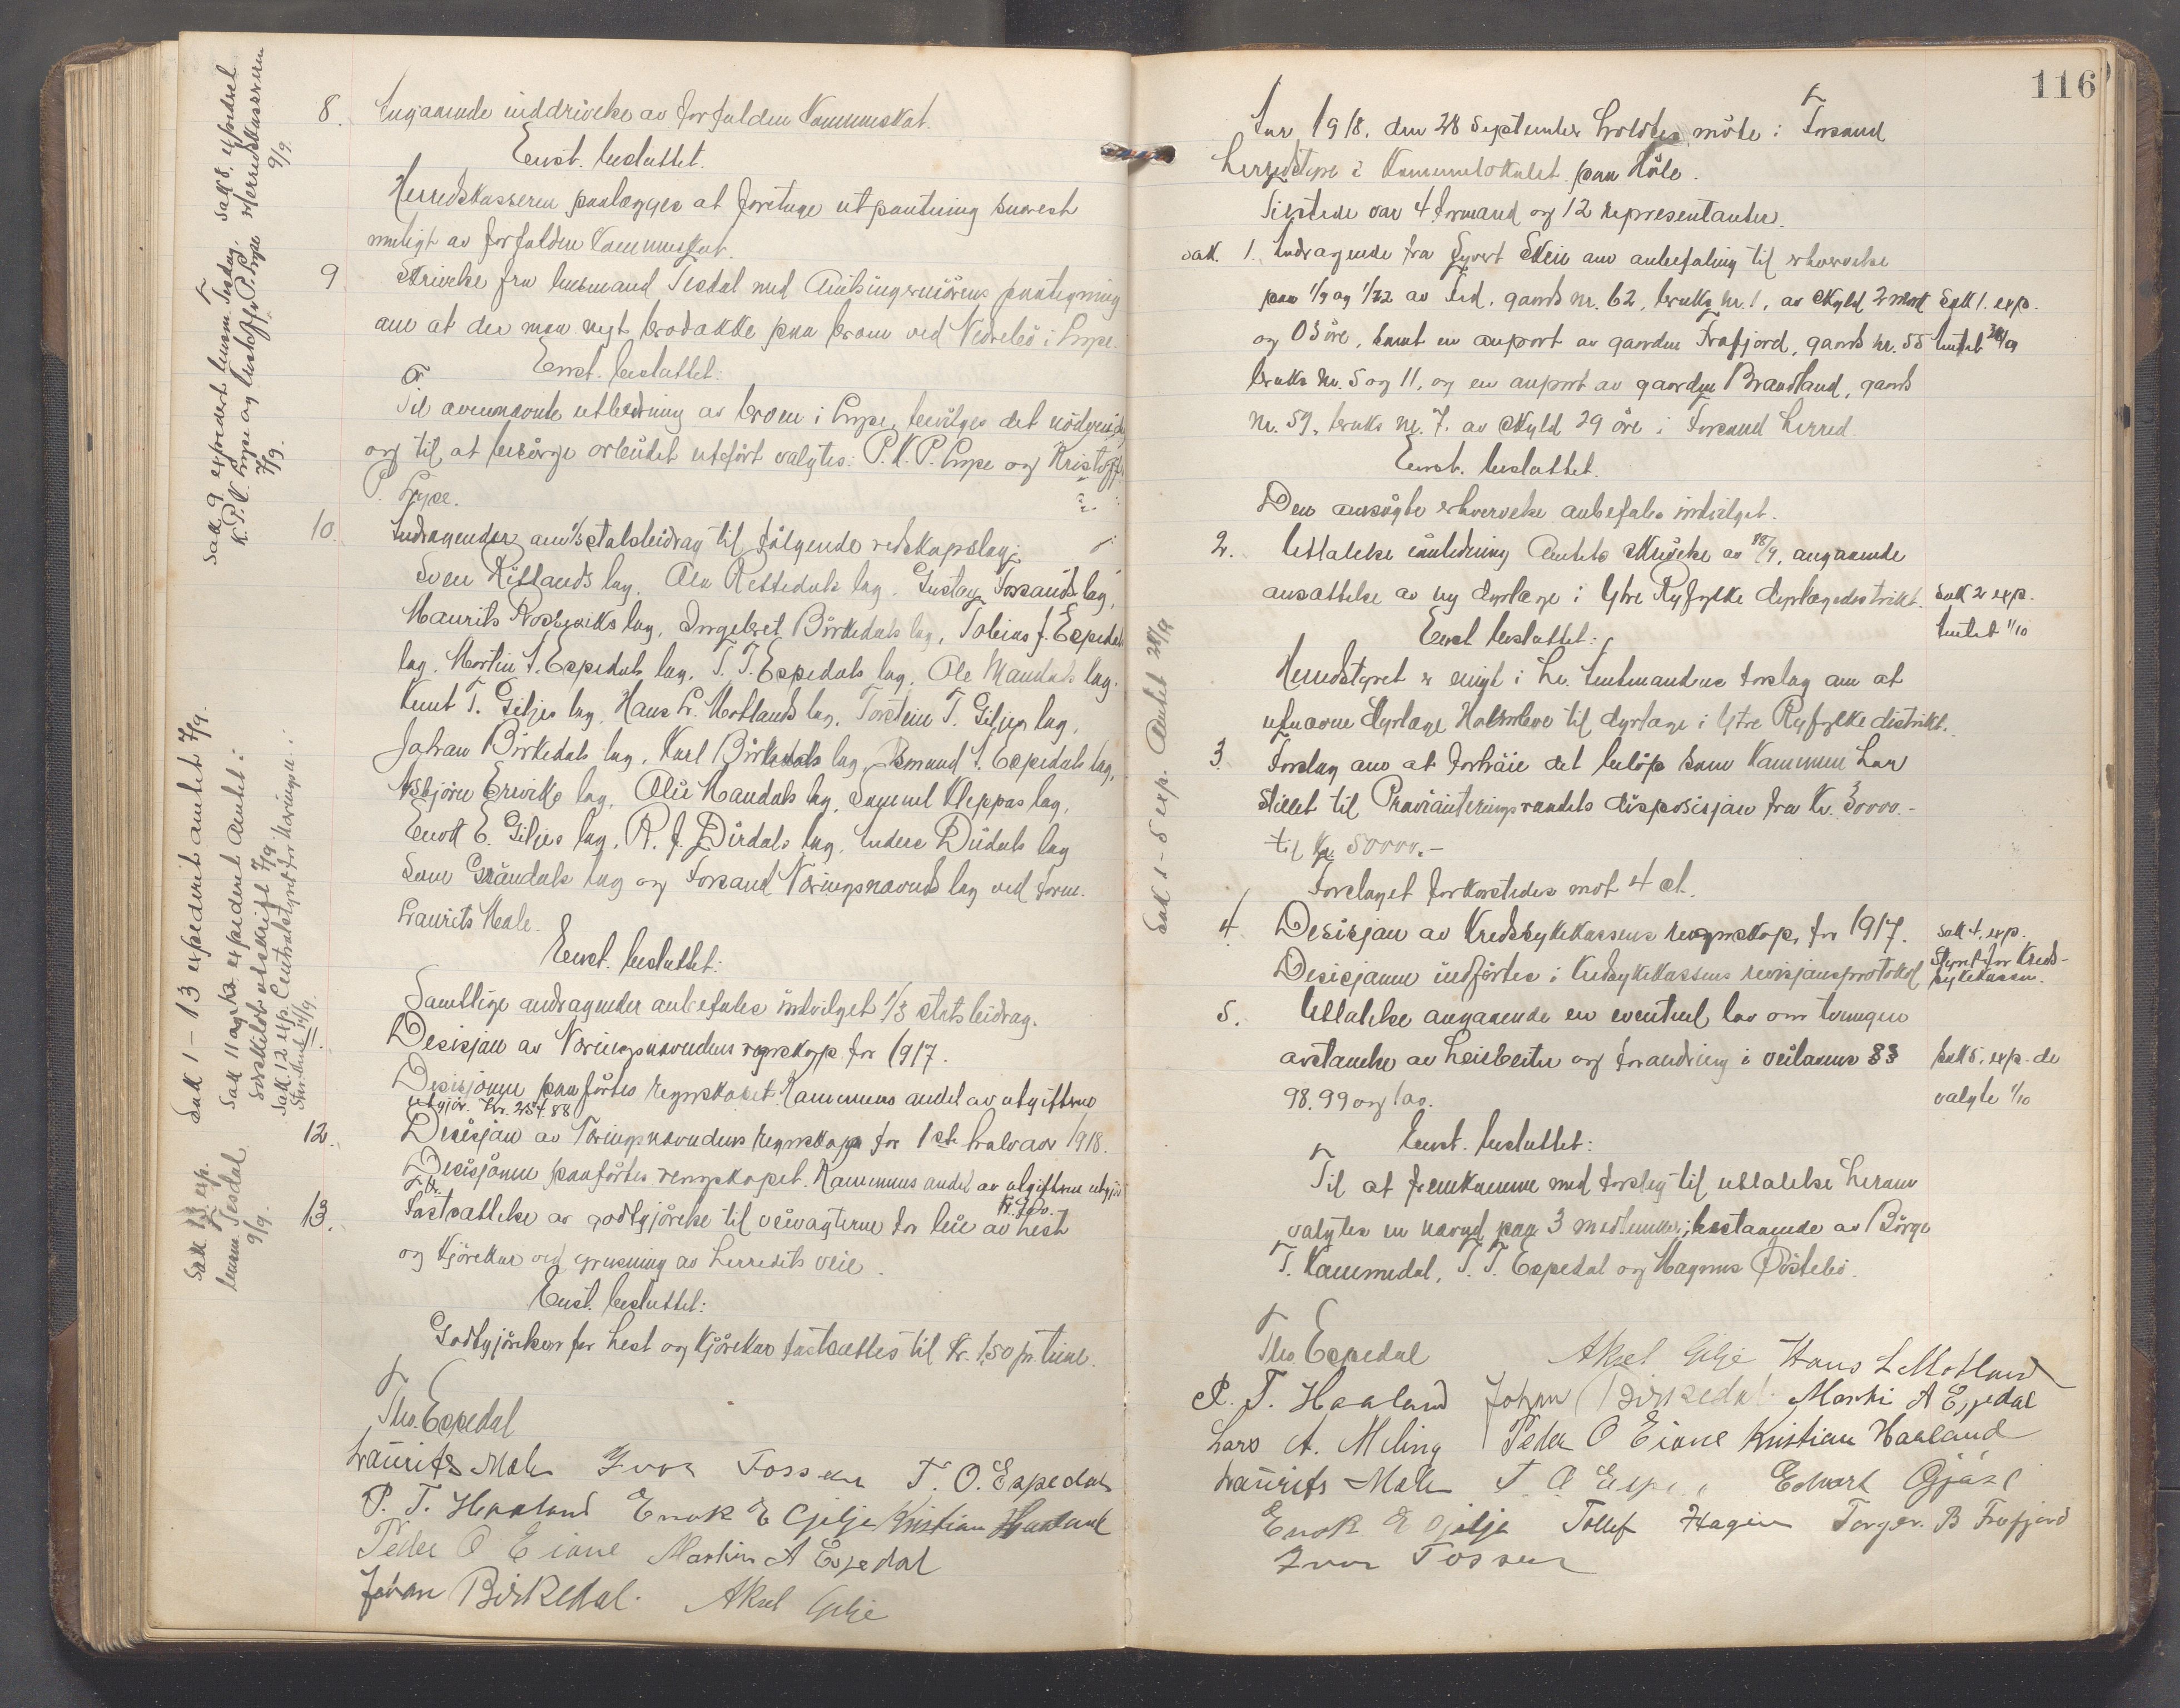 8. Angaaende inddrivelse av forfalden Kommuneskat.
Enst. besluttet.
Herredskasseren paalægges at foretage utpantning snarest
muligt av forfalden Kommuneskat.
9 Skrivelse fra lensmand Tesdal med Amtsingeniørens paategning
om at der maa nyt brodække paa broen ved Nedrebø i Lyse.
Enst. besluttet:
Til avennævnte utbedring av broen i Lyse, bevilges det nødvendige
og til at besørge arbeidet utført valgtes: P. K. P. Lyse og Kristoffer
P. Lyse.
10. Andragender om 1/3 statsbidrag til følgende redskapslag:
Sven Rettedals lag. Gustav Forsands lag,
Maurits lag, Ingebret Birkedals lag, Tobias J. Espedals
lag. Martin A. Espedals lag. T. T. Espedals lag. Ole Maudals lag.
Knut T. Giljes lag, Hans L. Motlands lag, Torstein T. Giljes lag,
Johan Birkedals lag, Karl Birkedals lag, Asmund A. Espedals lag,
Asbjørn Ereviks lag, Olai Maudals lag, Samuel Kleppas lag,
Enok E. Giljes lag, R. J. Dirdals lag, Anders Dirdals lag
Sven Grøndals lag og Forsand Næringsnævnds lag ved form.
Laurits Mæle.
Enst. besluttet:
Samtlige andragender anbefales indvilget 1/3 statsbidrag.
11. Desisjon av Næringsnævndens regnskap for 1917.
Desisjonen paaførtes regnskapet. Kommunens andel av utgifterne
utgjør. Kr. 254.88
12. Desisjon av Næringsnævndens regnskap for 1ste halvaar 1918.
Desisjonen paaførtes rengskapet. Kommunens andel av utgifterne utgjør
13. Fastsættelse av godtgjørelse til veivagterne for leie av hest
og kjørekar ved grusning av herredets veie.
Enst. besluttet:
Godtgjørelsen for hest og kjørekar fastsættes til Kr. 1,50 pr. time.
Tho. Espedal
Laurits Mæle Ivar Fossan T. O. Espedal
P. T. Haaland Enok E Gjilje Kristian Haaland
Peder O Eiane Martin A Espedal
Johan Birkedal. Aksel Gilje
Sak 9 expedert lensm. Tesdag. Sak 8. expedert
K. P. K. Lyse og Kristoffer P. Lyse Herredskasseren
7/9. 9/9.
Sak 1 - 13 expederet amtet 7/9.
Sak 11 og 12 expederet Amtet:
Særskilt utskrift 7/9
Sak. 12 exp. Centralstyret for Næringsn.:
14/9.
Sak. 13 exp.
lensm. Tesdal
9/9.
116
Aar 1918, den 28 September holdtes møte i Forsand
herredstyre i Kommunelokalet paa Høle.
Tilstede var 4 formænd og 12 representanter.
sak. 1. Andragende fra Syvert Skein om anbefaling til erhvervelse
paa 1/9 og 1/72 av Fed, gaards nr. 62, bruks nr. 1, av skyld 2 mark
og 05 øre, samt en anpart av gaarden Frafjord, gaards nr. 55
bruks nr. 5 og 11, og en anport av gaarden Brandland, gaards
nr. 59, bruks nr. 7. av skyld 29 øre i Forsand herred.
Sak 1. exp.
Amtet 28/9
Enst. besluttet.
Den ansøgte erhvervelse anbefales indvilget.
2. Uttalelse i anledning Amtets skrivelse av 18/9, angaaende
ansættelse av ny dyrlæge i Ytre Ryfylke dyrlægedistrikt.
Sak 2 exp.
Amtet 1/10
Enst besluttet:
Herredstyret er enigt i hr. Amtmandens forslag om at
utnævne dyrlæge til dyrlæge i Ytre Ryfylke distrikt.
3. Forslag om at forhøie det beløp som Kommunen har
stillet til Provianteringsraadets disposisjon fra Kr. 30000.-
til Kr. 50000.-
Forslaget forkastedes mot 4 st.
4. Desisjon av Kredssykekassens regnskap, for 1917.
Desisjonen indførtes i Kredsykekassens revisjonsprotokol
Sak 4. exp.
Styret for Kreds-
sykekassen.
5. Uttalelse angaaende en eventuel lov om tvungen
avstaaelse av heibeiter og forandring i veilovens 83
98. 99 og
Sak 5. exp. de
valgte 1/10
Enst. besluttet:
Til at fremkomme med forslag til uttalelse herom
valgtes en nævnd paa 3 medlemmer; bestaaende av Børge
T. Kommedal, T. T. Espedal og Magnus Østebø.
Sak 1 - 5 exp. Amtet 28/9
Tho. Espedal Aksel Gilje Hans L Motland
P. T. Haaland Johan Birkedal Martin A Espedal
Lars A. Meling Peder O Eiane Kristian Haaland
Laurits Mæle T. O. Edvart Gjøse
Enok E Gjilje Tollef Hagen Torger. B Frafjord
Ivar Fossan